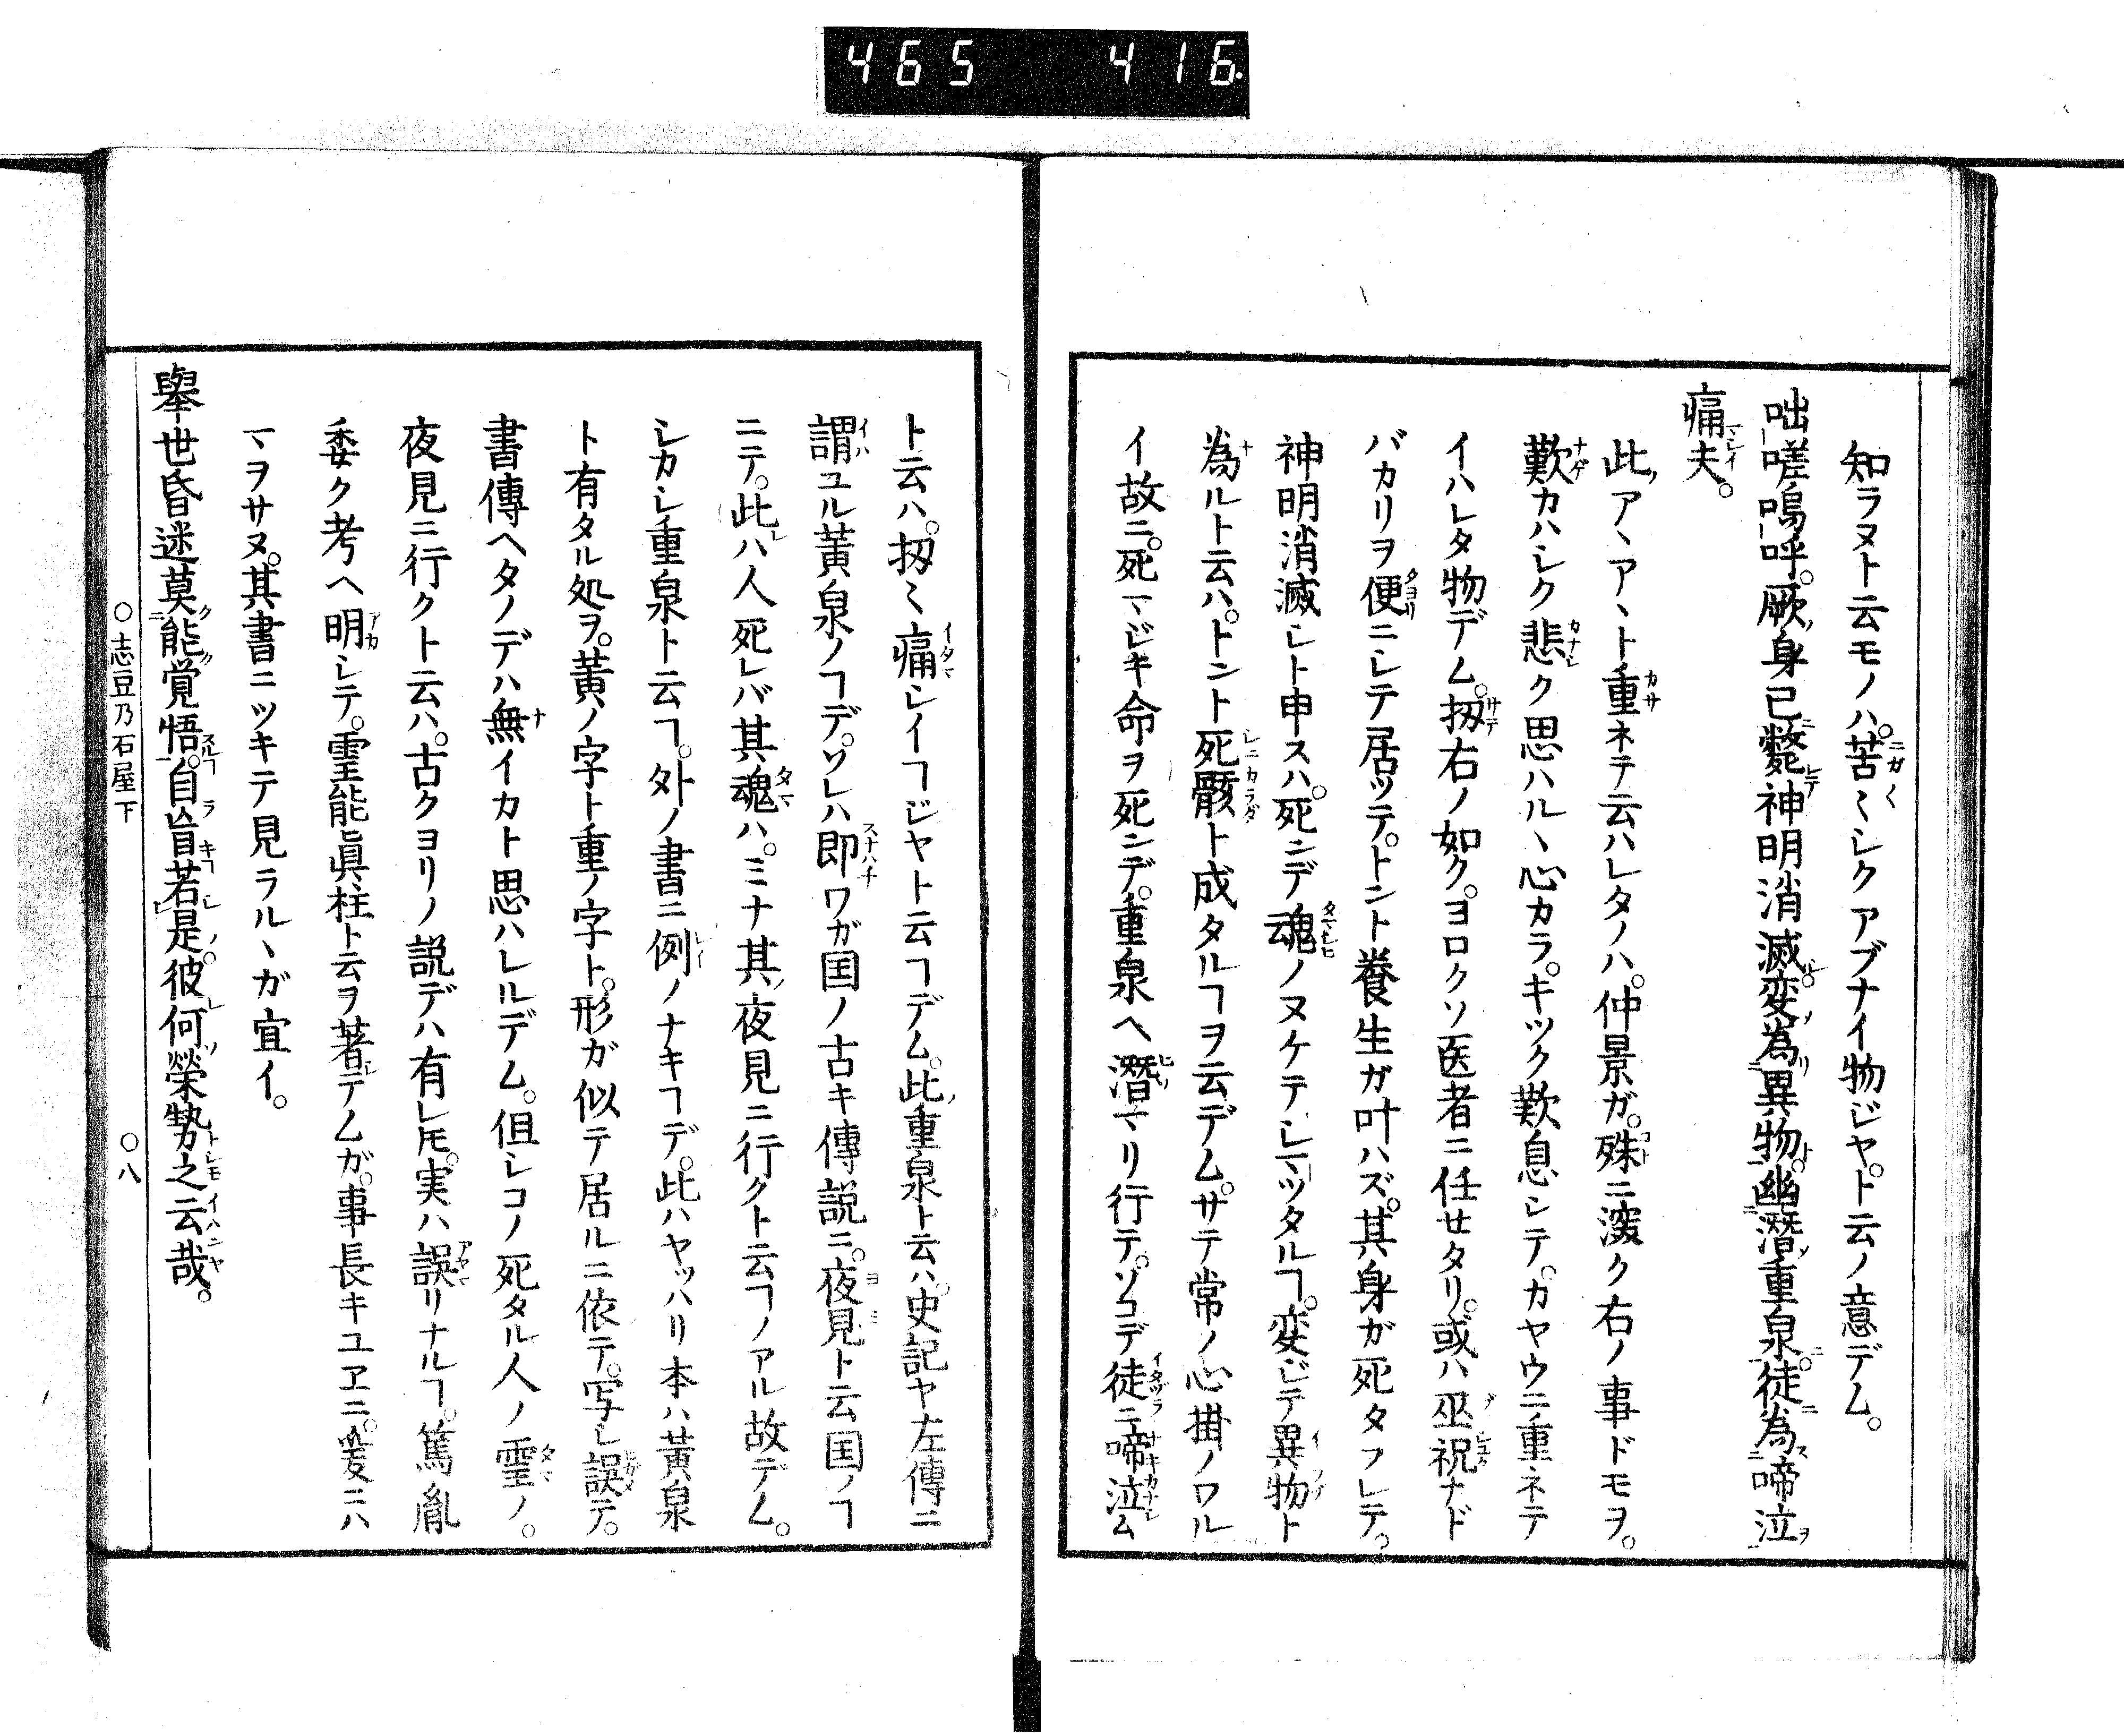 465 416
知ラヌト云モノハ。苦〱シクアブナイ物ジヤ。ト云ノ意デム。
咄嗟嗚呼。厥身已斃神明消滅変為異物。幽潜重泉。徒為啼泣
痛夫。
此アヽアヽト重ネテ云ハレタノハ。仲景ガ。殊ニ深ク右ノ事ドモヲ。
歎カハシク悲ク思ハルヽ心カラ。キツク歎息シテ。カヤウニ重ネテ
イハレタ物デム。扨右ノ如ク。ヨロクソ医者ニ任セタリ。或ハ巫祝ナド
バカリヲ便ニシテ居ツテ。トント養生ガ叶ハズ。其身ガ死タフレテ。
神明消滅シト申スハ。死ンデ魂ノヌケテシマツタルヿ。変ジテ異物ト
為ルト云ハ。トント死骸ト成タルヿヲ云デム。サテ常ノ心掛ノワル
イ故ニ。死マジキ命ヲ死ンデ。重泉ヘ潜マリ行テ。ソコデ徒ニ啼泣ム
ト云ハ。扨〱痛シイヿジヤト云ヿデム。此重泉ト云ハ。史記ヤ左傳ニ
謂ユル黄泉ノヿデ。ソレハ即ワガ国ノ古キ傳説ニ。夜見ト云国ノヿ
ニテ。此ハ人死レバ其魂ハ。ミナ其夜見ニ行クト云ヿノアル故デム。
シカシ重泉ト云ヿ。外ノ書ニ例ノナキヿデ。此ハヤッハリ本ハ黄泉
ト有タル処ヲ。黄ノ字ト重ノ字ト。形ガ似テ居ルニ依テ。写シ誤テ。
書傳ヘタノデハ無イカト思ハレルデム。但シコノ死タル人ノ霊ノ。
夜見ニ行クト云ハ。古クヨリノ説デハ有レ𪜈。実ハ誤リナルヿ。篤胤
委ク考ヘ明シテ。霊能眞柱ト云ヲ著シテムガ。事長キユヱニ。爰ニハ
マヲサヌ。其書ニツキテ見ラルヽガ宜イ。
擧世昏迷莫能覚悟。自旨若是。彼何榮勢之云哉。
○志豆乃石屋下 ○八